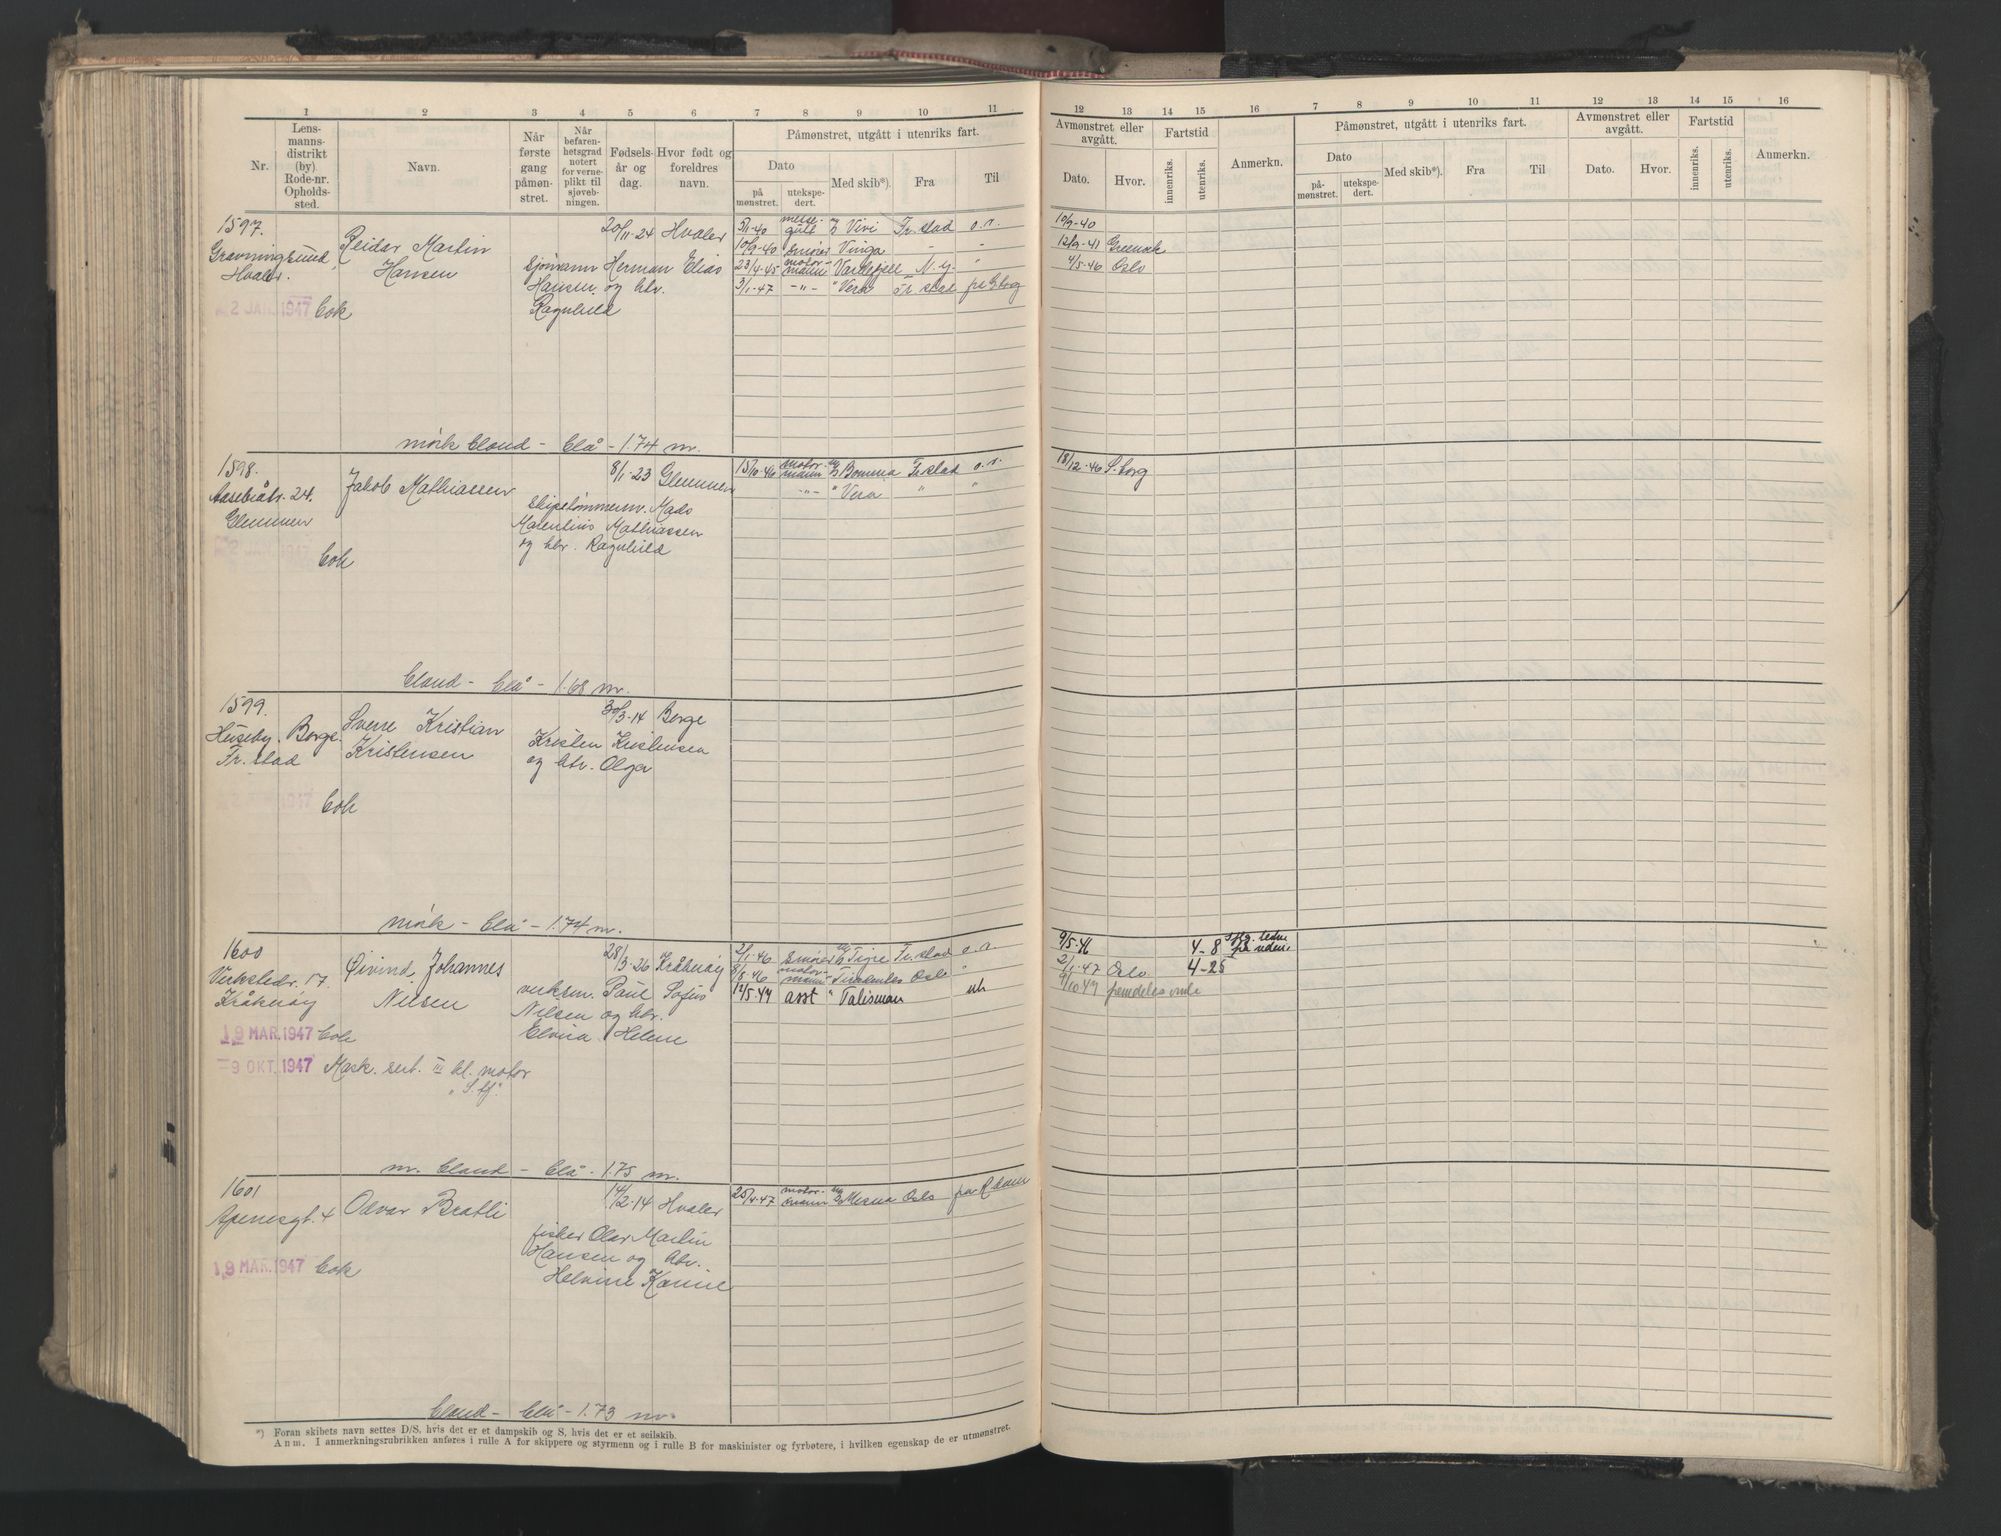 1 2 3 4 5 6 7 8 9 10 11
Nr.
Lens-
manns-
distrikt
(by)
Rode-nr.
Opholds-
sted.
Navn.
Når
første
gang
påmøn-
stret.
Når
befaren-
hetsgrad
notert
for verne-
plikt til
sjøveb-
ningen.
Fødsels-
år og
dag.
Hvor født og
foreldres
navn.
Påmønstret, utgått i utenriks fart.
Dato
på
mønstret.
utekspe-
dert.
Med skib*).
Fra
Til
12 13 14 15 16 7 8 9 10 11 12 13 14 15 16
Avmønstret eller
avgått.
Dato.
Hvor.
Fartstid
innenriks.
utenriks.
Anmerkn.
Påmønstret, utgått i utenriks fart.
Dato
på-
mønstret.
utekspe-
dert.
Med skib*).
Fra
Til
Avmønstret eller
avgått.
Dato.
Hvor.
Fartstid
innenriks.
utenriks.
Anmerkn.
1597.
Gravningsund
Hvaler.
2 JAN. 1947
Reidar Martin
Hansen
20/11-24 Hvaler
Sjömann Herman Elias
Hansen og htr.
Ragnhild
5/1-40 Vivi Fr.stad o.r.
10/9-40 smörer Vinga - "
23/4-45 motor-
mann Vardefjell N.Y. "
3/1-47 -"- " Vera Fr.stad på Gbog
10/9-40
12/9-41
4/5-46 Oslo
mörk blond - blå - 1.74 m.
1598.
24.
Glemmen
2 JAN. 1947
Jakob Mathiassen
8/1-23 Glemmen
skipstömmerm. Mads
Marentius Mathiassen
og htr. Ragnhild
15/10-46 motor-
mann Bomma Fr.stad o.r.
-"- " Vera " "
18/12-46 S.borg
blond - blå - 1.68 m.
1599.
Huseby. Borge.
Fr.stad
1947
Sverre Kristian
Kristensen
30/3-14 Borge
Kristen Kristensen
og htr. Olga
mörk - blå - 1.74 m.
1600
Verkstedv. 17.
Kråkeröy
19 MAR. 1947
-9 OKT. 1947 Mask. sert. III kl. motor
Öivind Johannes
Nilsen
28/3-26 Kråkeröy
verksm. Paul Sofus
Nilsen og htr.
Elvira Helene
2/1-46 smörer Tigre Fr.stad o.r.
8/5-46 motor-
mann Oslo "
12/5-47 asst " Talisman uh
9/5-46 4-8
2/1-47 Oslo 4-25
9/10-47 fremdeles
m. blond - blå - 1.75 m.
1601
Apenesgt. 4
19 MAR. 1947
Odvar Bratli
14/2-14 Hvaler
fisker Olav Martin
Hansen og htr.
Helvine Karine
25/4-47 motor-
mann Mosna Oslo på R.dam
blond - blå - 1.73 m.
*) Foran skibets navn settes D/S, hvis det er et dampskib og S, hvis det er et seilskib.
Anm. I anmerkningsrubrikken anføres i rulle A for skippere og styrmenn og i rulle B for maskinister og fyrbøtere, i hvilken egenskap de er utmønstret.